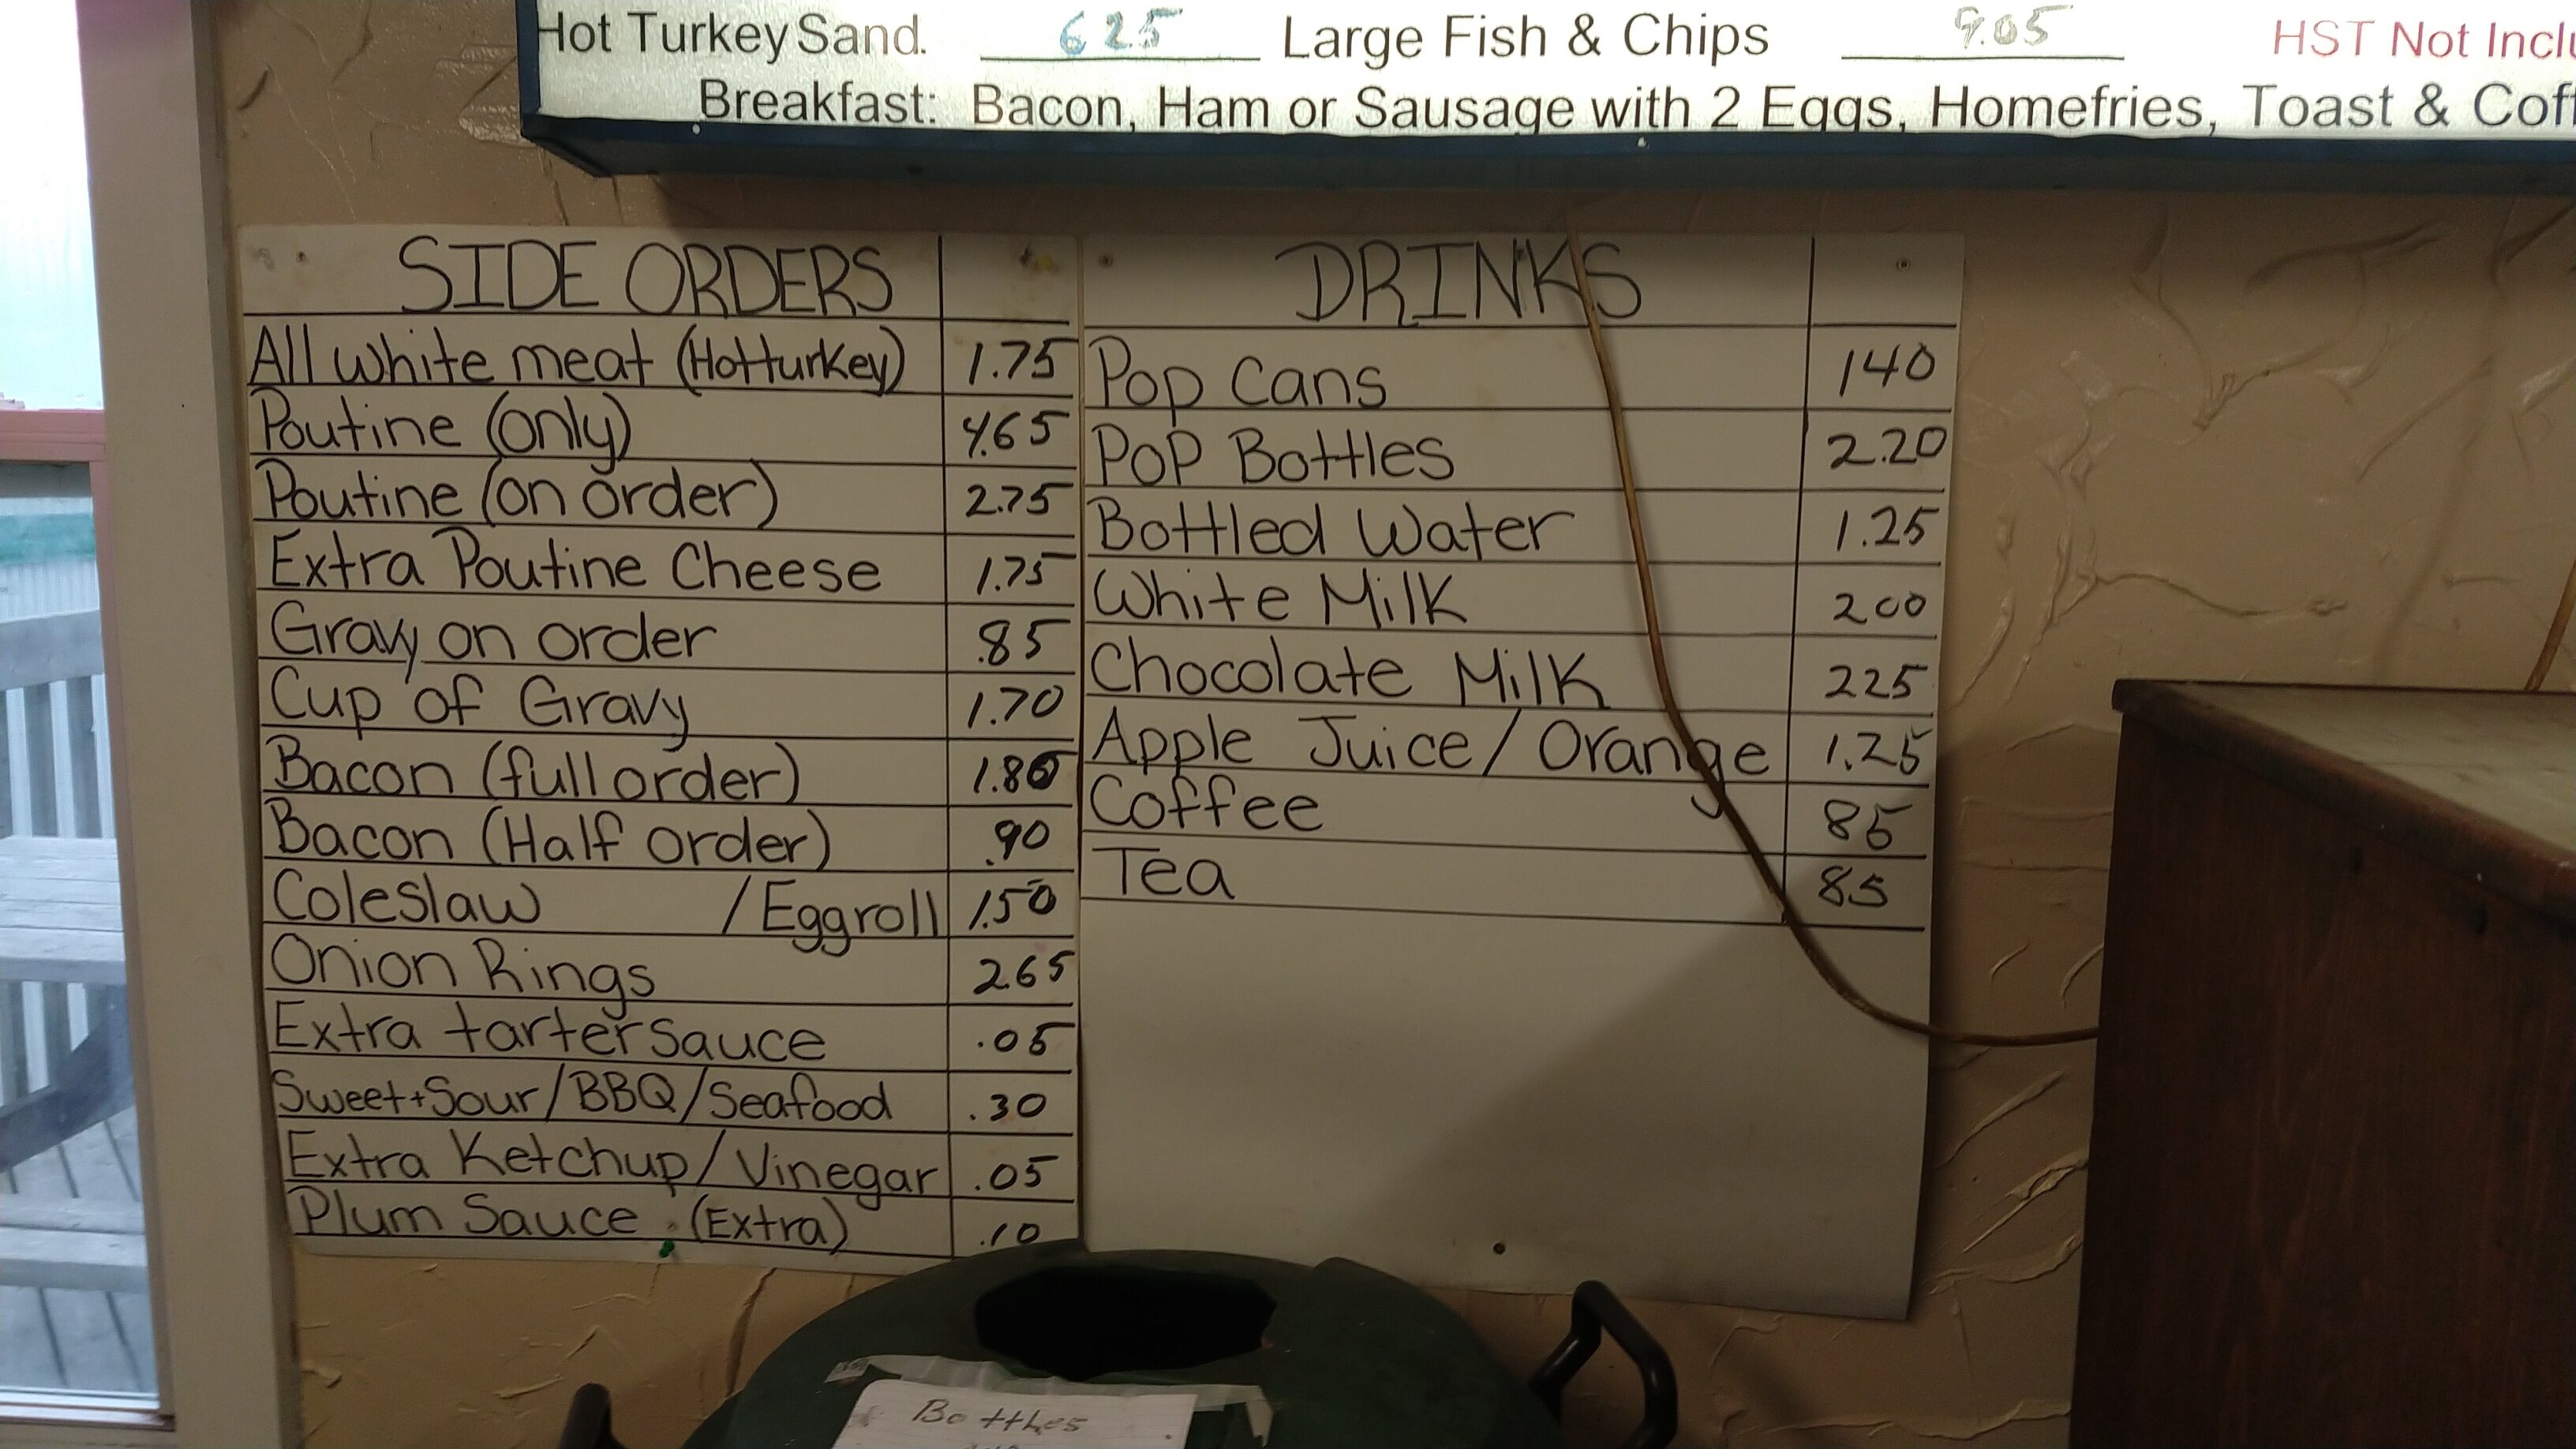 Hot Turkey Sand. 6 25 Large Fish & Chips 9.05 HST Not Inclu
Breakfast: Bacon, Ham or Sausage with 2 Eggs, Homefries, Toast & Coff
SIDE ORDERS
All white meat (Hot turkey) 1.75
Poutine (only) 4.65
Poutine (on order) 2.75
Extra Poutine Cheese 1.75
Gravy on order .85
Cup of Gravy 1.70
Bacon (full order) 1.80
Bacon (Half order) .90
Coleslaw / Eggroll 1.50
Onion Rings 2.65
Extra tarter sauce .05
Sweet + Sour / BBQ / Seafood .30
Extra Ketchup / Vinegar .05
Plum Sauce (Extra) .10
DRINKS
Pop Cans 140
Pop Bottles 2.20
Bottled Water 1.25
White Milk 200
Chocolate Milk 225
Apple Juice / Orange 1.25
Coffee 85
Tea 85
Botthes